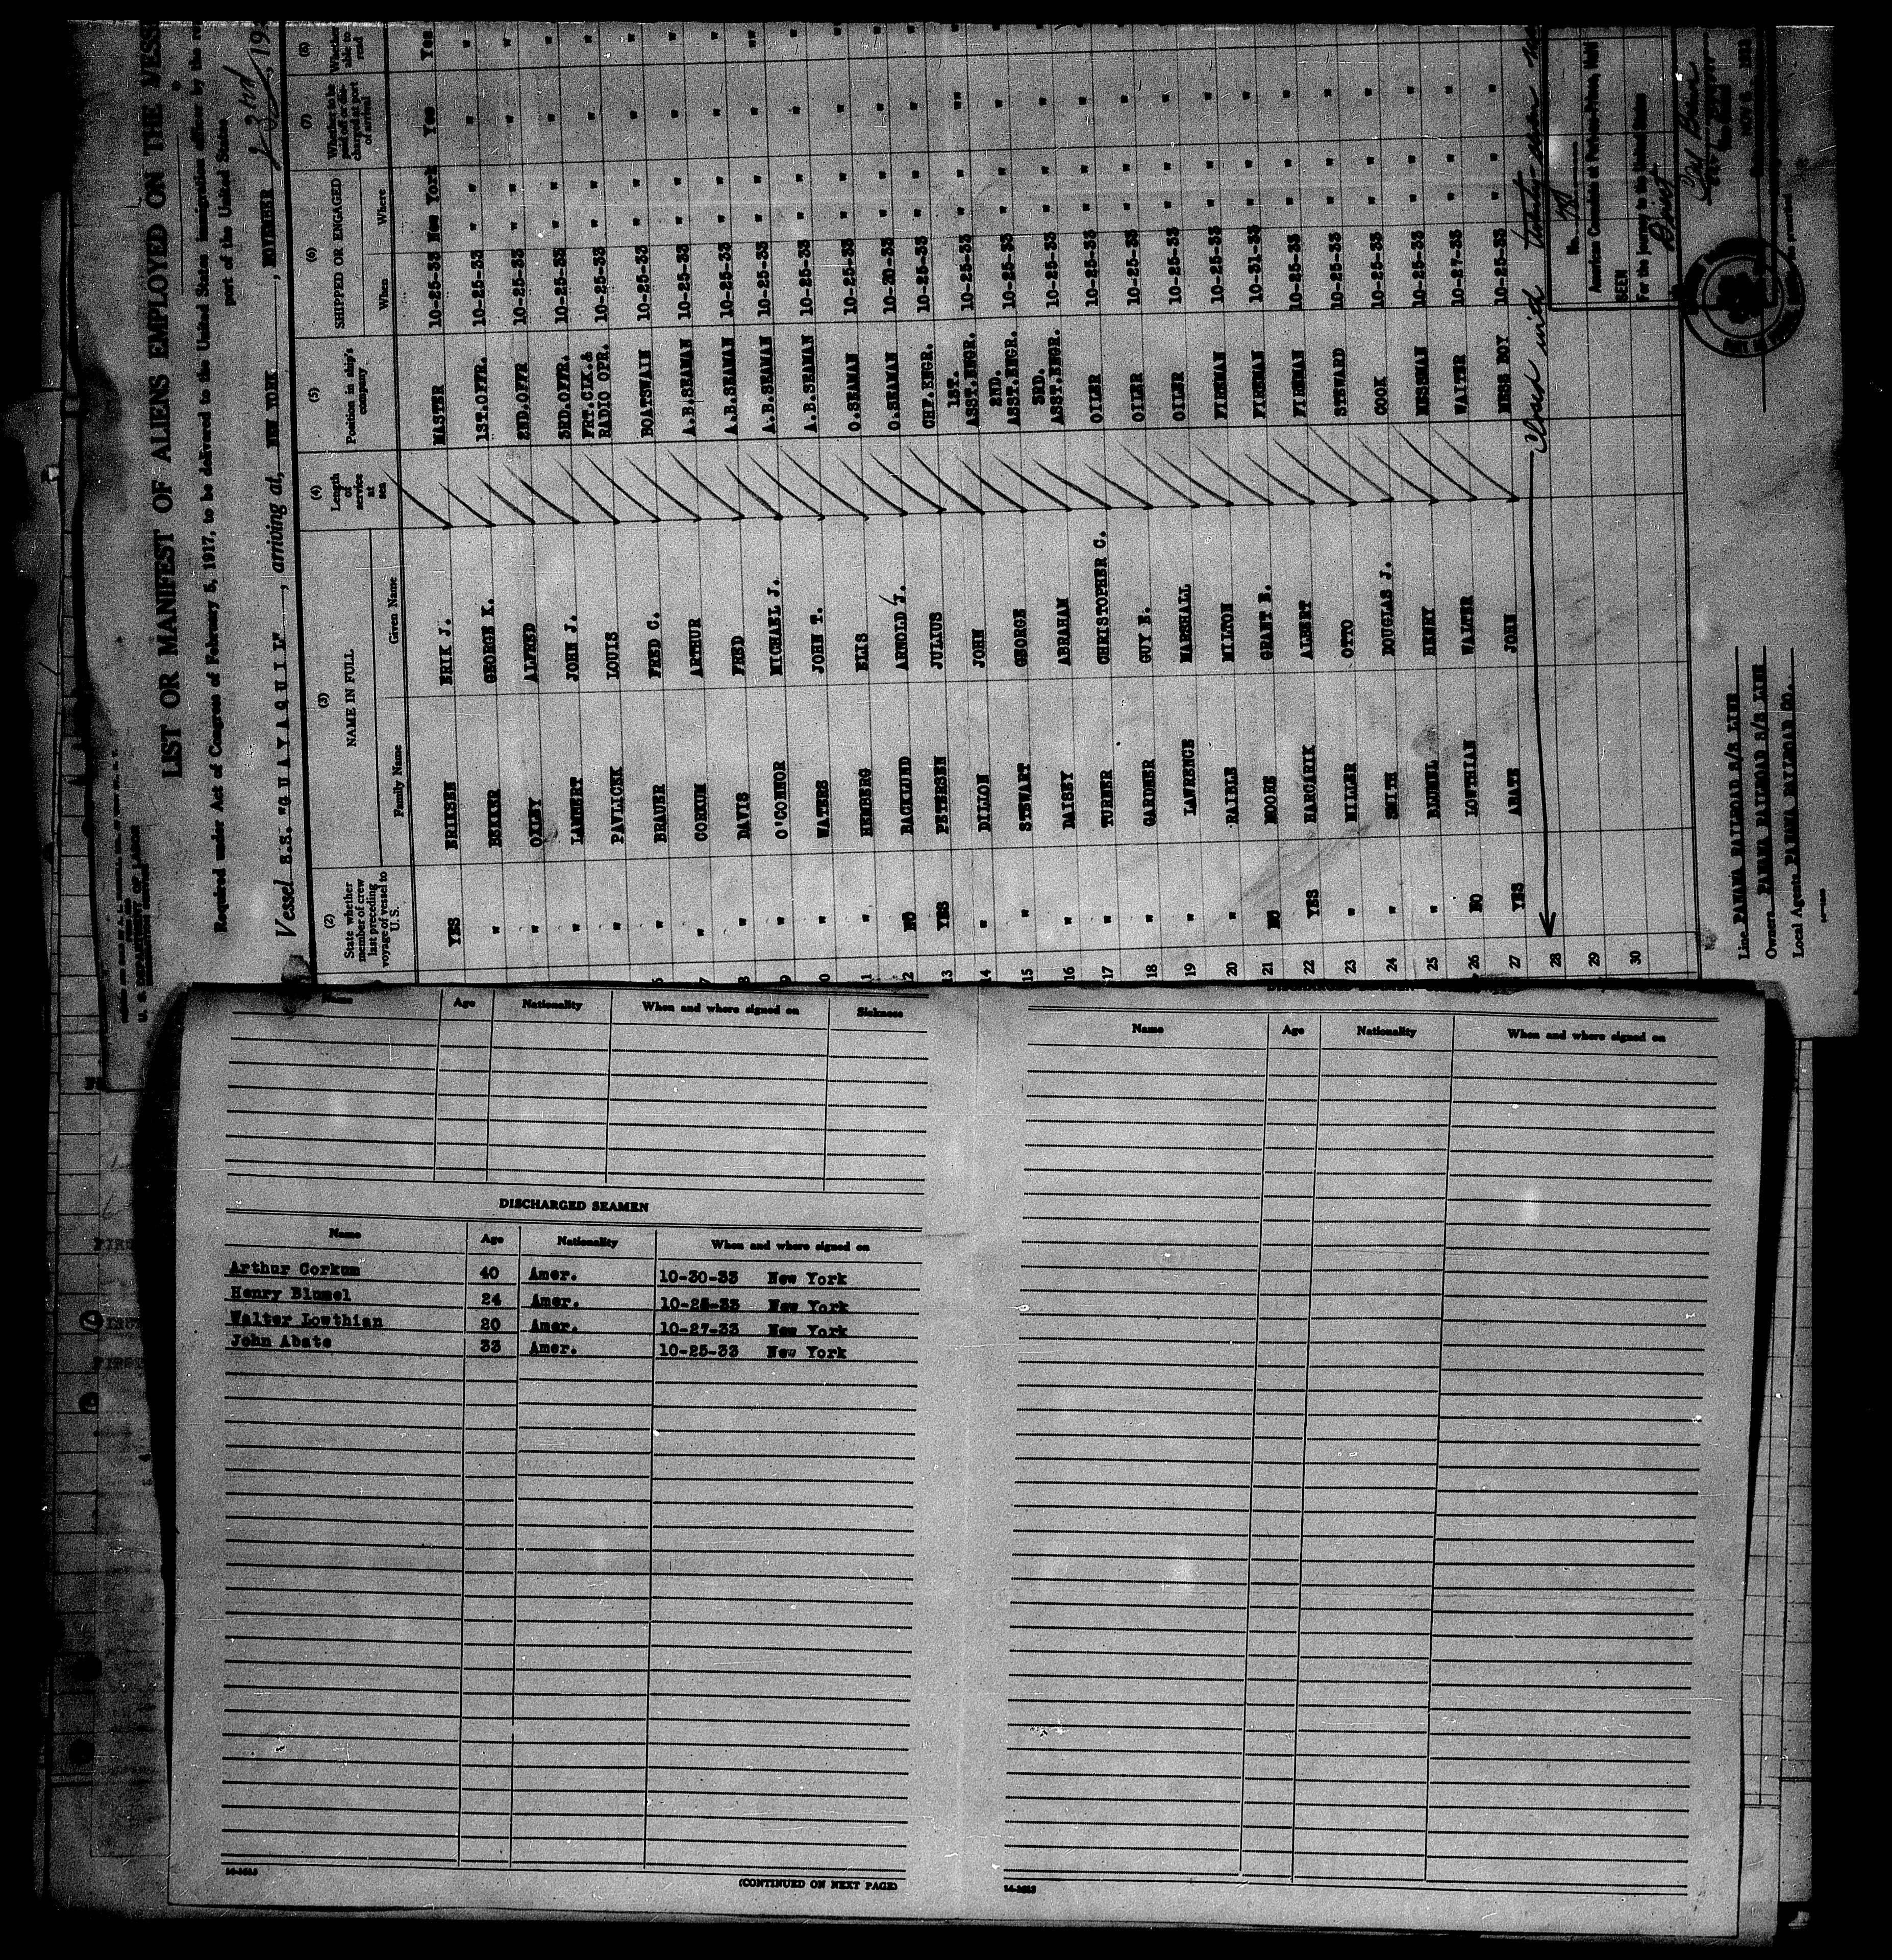 U. S. DEPARTMENT OF LABOR
LIST OR MANIFEST OF ALIENS EMPLOYED ON THE VESS
Required under Act of Congress of February 5, 1917, to be delivered to the United States immigration officer by the
port of the United States
Vessel S.S. "GUAYAQUIL", arriving at, NEW YORK, NOVEMBER 19
(2) (3) (4) (5) (6) (7) (8)
State whether member of crew last preceding voyage of vessel to U. S. NAME IN FULL Length of service at sea Position in ship's company SHIPPED OR ENGAGED Whether to be paid off or discharged at port of arrival Whether able to read
Family Name Given Name When Where
YES ERIKSEN ERIK J. MASTER 10-25-33 New York Yes Yes
" BEKKER GEORGE K. 1ST.OFFR. 10-25-33 " " " "
" OXLEY ALFRED 2ND.OFFR 10-25-33 " " " "
" LAMBERT JOHN J. 3RD.OFFR. 10-25-33 " " " "
" PAVLICEK LOUIS FRT.CLK.& RADIO OPR. 10-25-33 " " " "
" BRAUER FRED C. BOATSWAIN 10-25-33 " " " "
7 " CORKUM ARTHUR A.B.SEAMAN 10-25-33 " " " "
8 " DAVIS FRED A.B.SEAMAN 10-25-33 " " " "
9 " O'CONNOR MICHAEL J. A.B.SEAMAN 10-25-33 " " " "
0 " WATERS JOHN T. A.B.SEAMAN 10-25-33 " " " "
11 " HEMBERG ELIS O.SEAMAN 10-25-33 " " " "
12 NO BACKLUND ARNOLD J. O.SEAMAN 10-30-33 " " " "
13 YES PETERSEN JULIUS CHF.ENGR. 10-25-33 " " " "
14 " DILLON JOHN 1ST. ASST.ENGR. 10-25-33 " " " "
15 " STEWART GEORGE 2ND. ASST.ENGR. 10-25-33 " " " "
16 " DAISEY ABRAHAM 3RD. ASST.ENGR. 10-25-33 " " " "
17 " TURNER CHRISTOPHER C. OILER 10-25-33 " " " "
18 " GARDNER GUY E. OILER 10-25-33 " " " "
19 " LAWRENCE MARSHALL OILER 10-25-33 " " " "
20 " RAIBLE MILTON FIREMAN 10-25-33 " " " "
21 NO MOORE GRANT E. FIREMAN 10-31-33 " " " "
22 YES HARGARIK ALBERT FIREMAN 10-25-33 " " " "
23 " MILLER OTTO STEWARD 10-25-33 " " " "
24 " SMITH DOUGLAS J. COOK 10-25-33 " " " "
25 " BLUMEL HENRY MESSMAN 10-25-33 " " " "
26 NO LOWTHIAN WALTER WAITER 10-27-33 " " " "
27 YES ABATE JOHN MESS BOY 10-25-33 " " " "
28 Closed with twenty-seven
29
30
No.
American Consulate at Port-au-Prince, Haiti
SEEN
For the journey to the United States
Line PANAMA RAILROAD S/S LINE
Owners PANAMA RAILROAD S/S LINE
Local Agents PANAMA RAILROAD CO.
Name Age Nationality When and where signed on Sickness
DISCHARGED SEAMEN
Name Age Nationality When and where signed on
Arthur Corkum 40 Amer. 10-30-33 New York
Henry Blumel 24 Amer. 10-25-33 New York
Walter Lowthian 20 Amer. 10-27-33 New York
John Abate 33 Amer. 10-25-33 New York
(CONTINUED ON NEXT PAGE)
DISCHARGED SEAMEN
Name Age Nationality When and where signed on